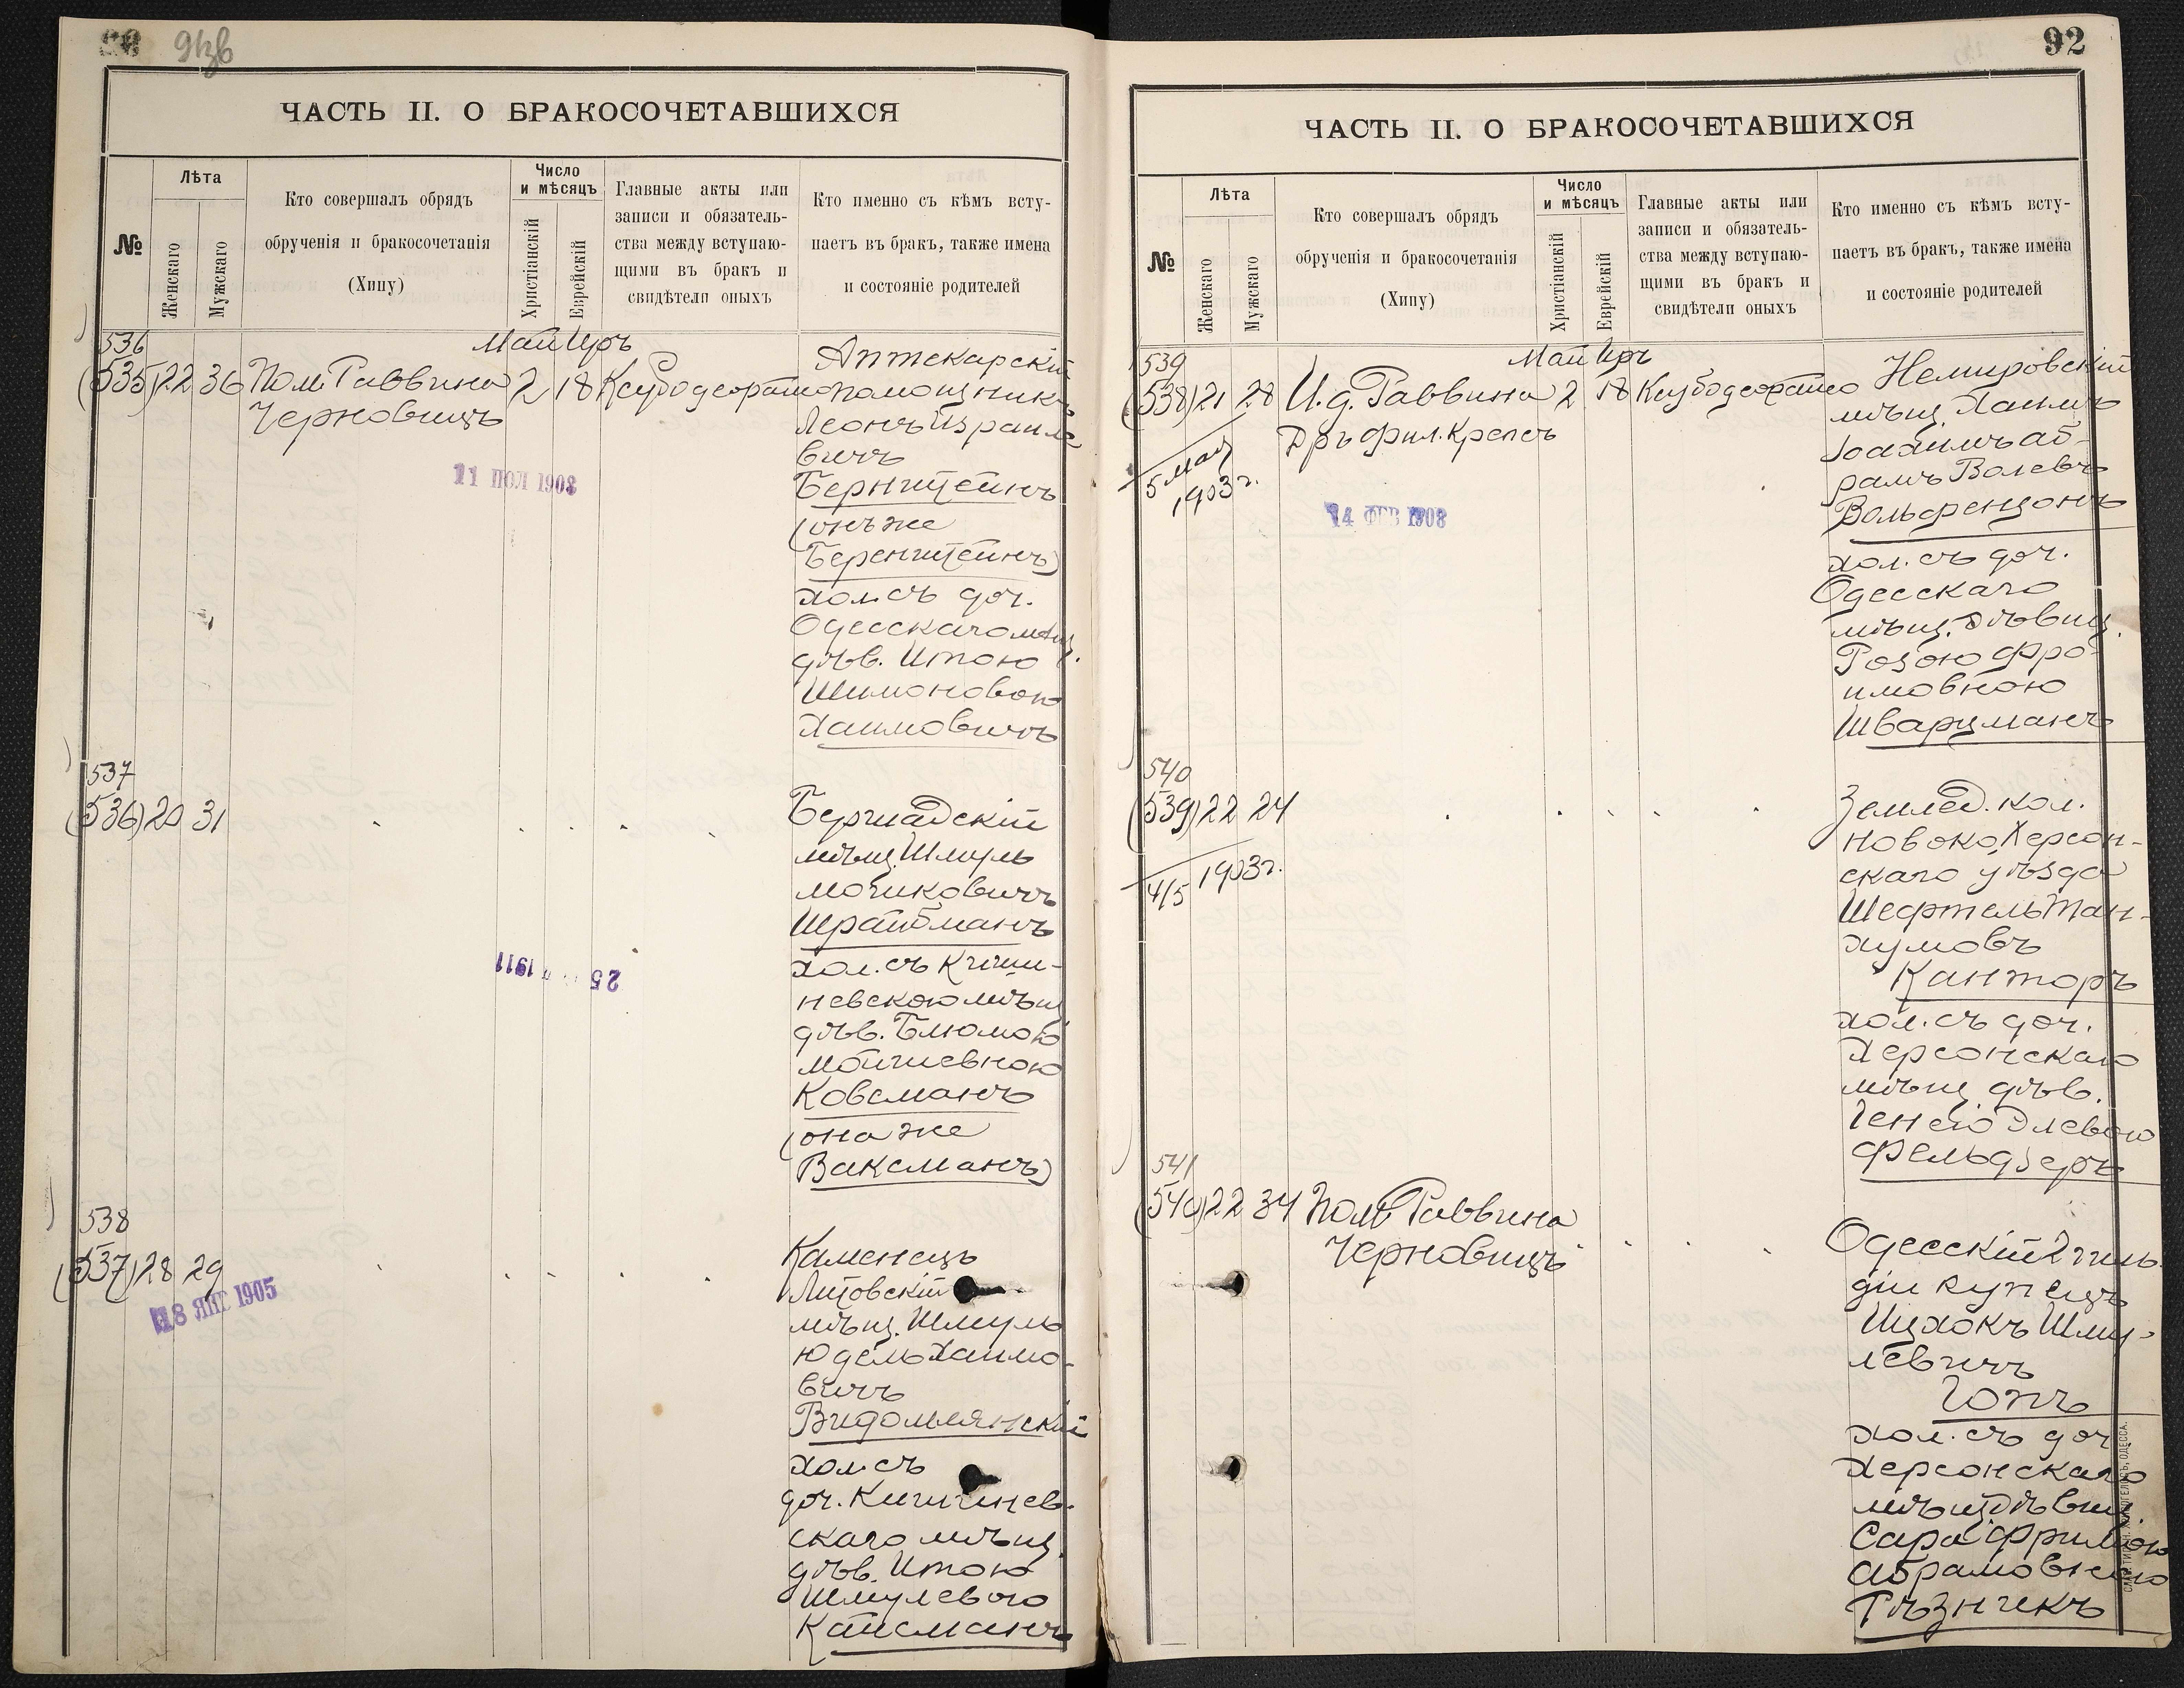 91зв
ЧАСТЬ II. О БРАКОСОЧЕТАВШИХСЯ
№
Лѣта
Женскаго
Мужскаго
Кто совершалъ обрядъ
обрученія и бракосочетанія
(Хипу)
Число
и мѣсяцъ
Христіанскій
Еврейскій
Главные акты или
записи и обязатель-
ства между вступаю-
щими въ бракъ и
свидѣтели оныхъ
Кто именно съ кѣмъ всту-
паетъ въ бракъ, также имена
и состояніе родителей
536
(535) 22 36 Пом. Раввина
Черновицъ
Май Іиръ
2 18
11 ПОЛ 1908
Аптекарскій
помощникъ
Леонъ Израиле
вичъ
Бернштейнъ
(онъ же
Беренштейнъ)
хол. съ доч.
Одесскаго мѣщ.
дѣв. Итою
Шимоновою
Хаимовичъ
537
(536) 20 31
25 1911
Бершадскій
мѣщ. Шмуль
Мошковичъ
Шрайбманъ
хол. съ Киши-
невскою мѣщ
дѣв. Блюмою
Мошиевною
Ковсманъ
(она же
Ваксманъ)
538
(537) 28 29
18 ЯНВ 1905
Каменецъ
Литовскій
мѣщ. Шмуль
Юдель Хаимо-
вичъ
Видомлянскій
хол. съ
доч. Кишинев-
скаго мѣщ.
дѣв. Итою
Шмулевою
Кайсманъ
92
ЧАСТЬ II. О БРАКОСОЧЕТАВШИХСЯ
№
Лѣта
Женскаго
Мужскаго
Кто совершалъ обрядъ
обрученія и бракосочетанія
(Хипу)
Число
и мѣсяцъ
Христіанскій
Еврейскій
Главные акты или
записи и обязатель-
ства между вступаю-
щими въ бракъ и
свидѣтели оныхъ
Кто именно съ кѣмъ всту-
паетъ въ бракъ, также имена
и состояніе родителей
539
(538) 21 28 И.д. Раввина
Дръ фил. Крепсъ
Май Іиръ
2 18
5 мая
1903 г.
14 ФЕВ 1908
Немировскій
мѣщ. Хаимъ
Іоахимъ Аб-
рамъ Волевъ
Вольфензонъ
хол. съ доч.
Одесскаго
мѣщ. дѣвиц.
Розою Фро-
имовною
Шварцманъ
540
(539) 22 24
4/5 1903 г.
Землед. кол.
Новоко Херсон-
скаго уѣзда
Шефтель Тан-
хумовъ
Канторъ
хол. съ доч.
Херсонскаго
мѣщ. дѣв.
Генею Элевою
Фельдзеръ
541
(540) 22 34 Пом. Раввина
Черновицъ
Одесскій 2 гиль
діи купецъ
Ицхокъ Шму-
левичъ
Гохъ
хол. съ доч
Херсонскаго
мѣщ. дѣвиц.
Сара Фримою
Абрамовною
Рѣзникъ